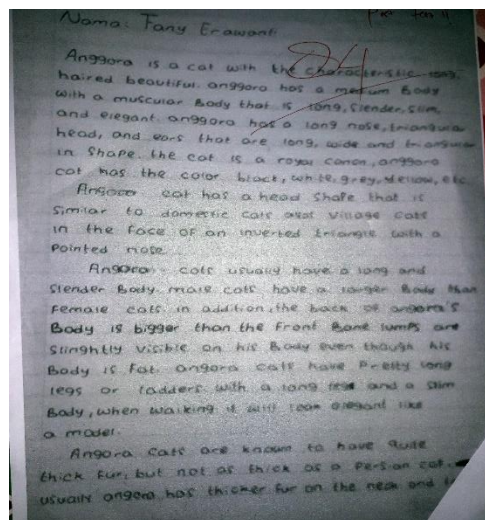 Nama: Fany Erawanti
84
Anggora is a cat with the characteristic long
haired beautiful. anggora has a medium Body
with a muscular Body that is long, slender, slim,
and elegant. anggora has a long nose, triangular
head, and ears that are long, wide and triangular
in shape. the cat is a royal canon, anggora
cat has the color black, white, grey, yellow, etc
Angora cat has a head shape that is
similar to domestic cats and village cats
in the face of an inverted triangle with a
pointed nose.
Angora cats usually have a long and
slender Body. male cats have a larger Body than
female cats in addition, the back of angora's
Body is bigger than the front Bone lumps are
slinghtly visible on his Body even though his
Body is fat. angora cats have pretty long
legs or ladders with a long legs and a slim
Body, when walking it will look elegant like
a model.
Angora cats are known to have quite
thick fur, but not as thick as a persian cat.
usually angora has thicker fur on the neck and